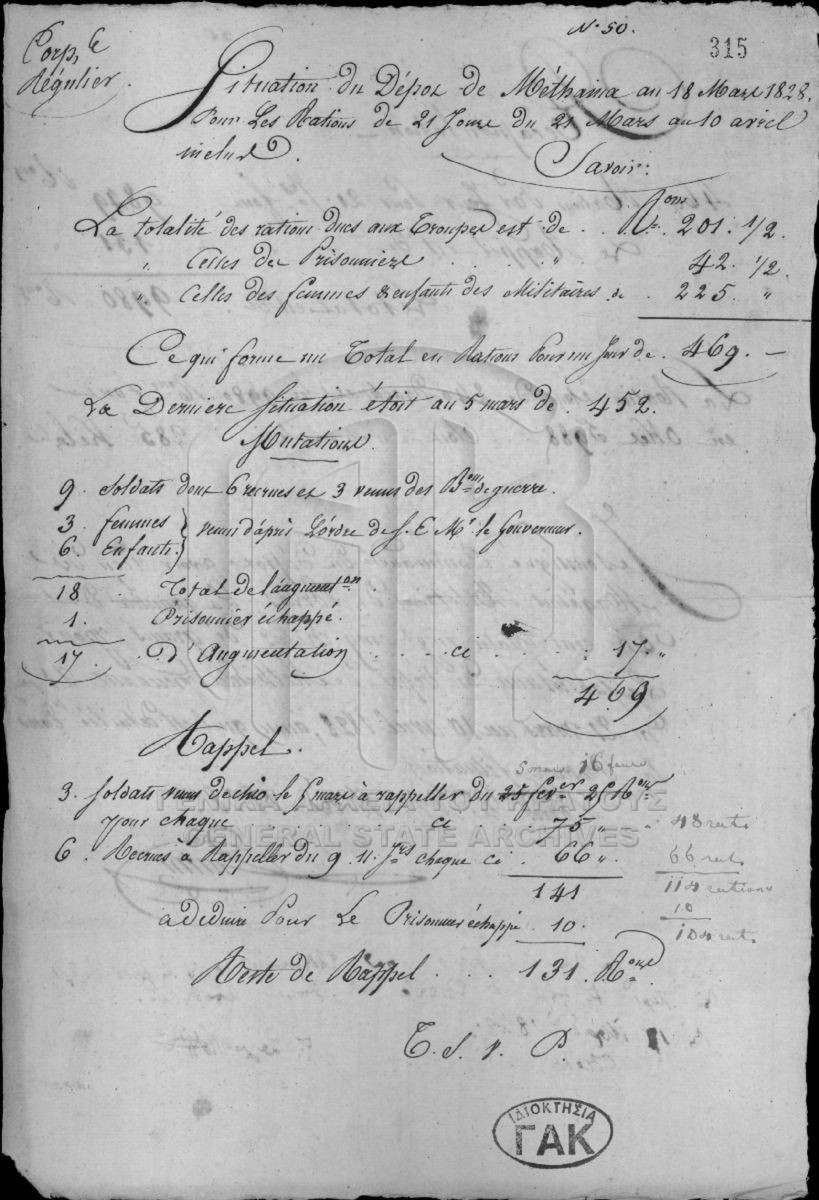 N° 50.
315
Corps
Régulier
Situation du Dépot de Méthana au 18 Mars 1828.
Pour Les Rations de 21 Jours du 21 Mars au 10 avril
inclus.
Savoir:
La totalité des rations dues aux Troupes est de . . Rons 201. 1/2.
" Celles des Prisonniers . . . . " 42. 1/2.
" Celles des femmes & enfants des Militaires de . 225. "
Ce qui forme un Total en Rations Pour un Jour de . 469. —
La Derniere Situation étoit au 5 mars de . 452.
Mutations.
9. Soldats dont 6 recrues et 3 venus des Bons de guerre.
3. femmes
6 Enfants. } venus d'après L'ordre de S. E Mr. le Gouverneur.
18 Total de l'augmenton.
1. Prisonnier échappé.
17. . . D'Augmentation . . . . ci . . . . 17. "
469
Rappel.
5 mars 16 feuer
3. Soldats venus de chio le 5 mars à rappeller du 25 fever 25 Rons
pour chaque . . . ci . 75 " 48 rat
6. Recrues à Rappeller du 9. 11. Jrs chaque ci . 66 ". 66 rat
141 114 rations
à deduire Pour Le Prisonnier échappé . 10. 10
104 rat
Reste de Rappel . . . 131. Rons
T. S. V. P.
ΓΕΝΙΚΑ ΑΡΧΕΙΑ ΤΟΥ ΚΡΑΤΟΥΣ
GENERAL STATE ARCHIVES
ΙΔΙΟΚΤΗΣΙΑ
ΓΑΚ